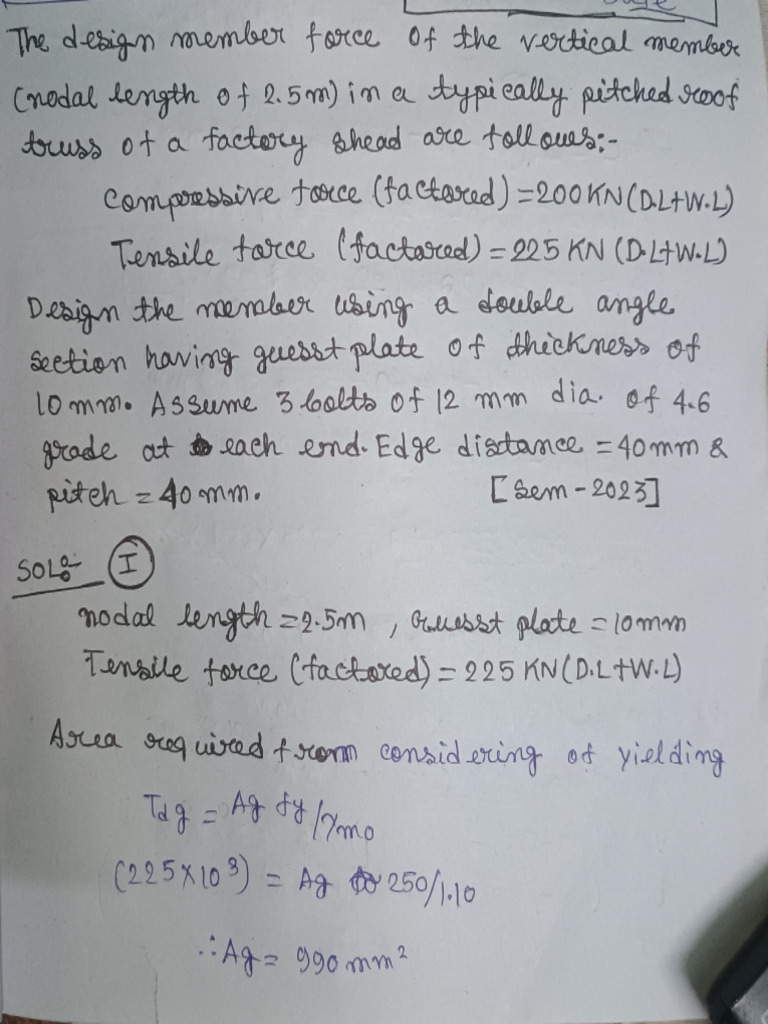 The design member force of the vertical member
(nodal length of 2.5m) in a typically pitched roof
truss of a factory shead are follows:-
Compressive force (factored) = 200 KN (D.L+W.L)
Tensile force (factored) = 225 KN (D.L+W.L)
Design the member using a double angle
section having guesst plate of thickness of
10 mm. Assume 3 bolts of 12 mm dia. of 4.6
grade at each end. Edge distance = 40 mm &
pitch = 40 mm. [Sem-2023]
SOLn:- I
nodal length = 2.5m , Guesst plate = 10mm
Tensile force (factored) = 225 KN (D.L+W.L)
Area required from considering of yielding
Tdg = Ag fy/γmo
(225×10³) = Ag 250/1.10
∴ Ag = 990 mm²